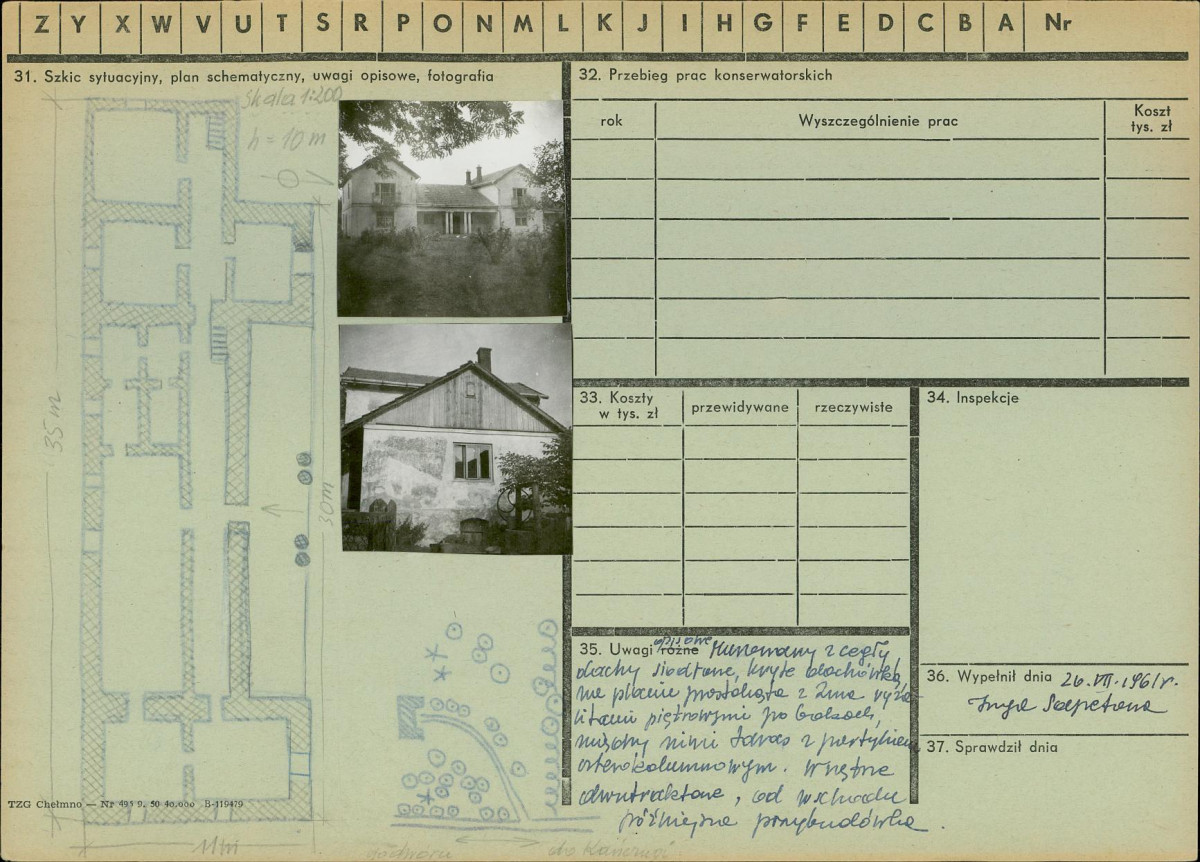 Z Y X W V U T S R P O N M L K J I H G F E D C B A Nr
31. Szkic sytuacyjny, plan schematyczny, uwagi opisowe, fotografia
Skala 1:200
h = 10 m
35 m
30 m
11 m
do Kańczugi
TZG Chełmno — Nr 495 9. 50 40.000 B-119479
32. Przebieg prac konserwatorskich
rok
Wyszczególnienie prac
Koszt
tys. zł
33. Koszty
w tys. zł
przewidywane
rzeczywiste
34. Inspekcje
35. Uwagi różne opisowe Murowany z cegły
dachy siodłane, kryte dachówką,
na planie prostokąta z 2ma ryza
litami piętrowymi po bokach,
między nimi taras z portykiem
czterokolumnowym. Wnętrze
dwutraktowe, od wschodu
późniejsza przybudówka.
36. Wypełnił dnia 26.VII.1961r.
37. Sprawdził dnia